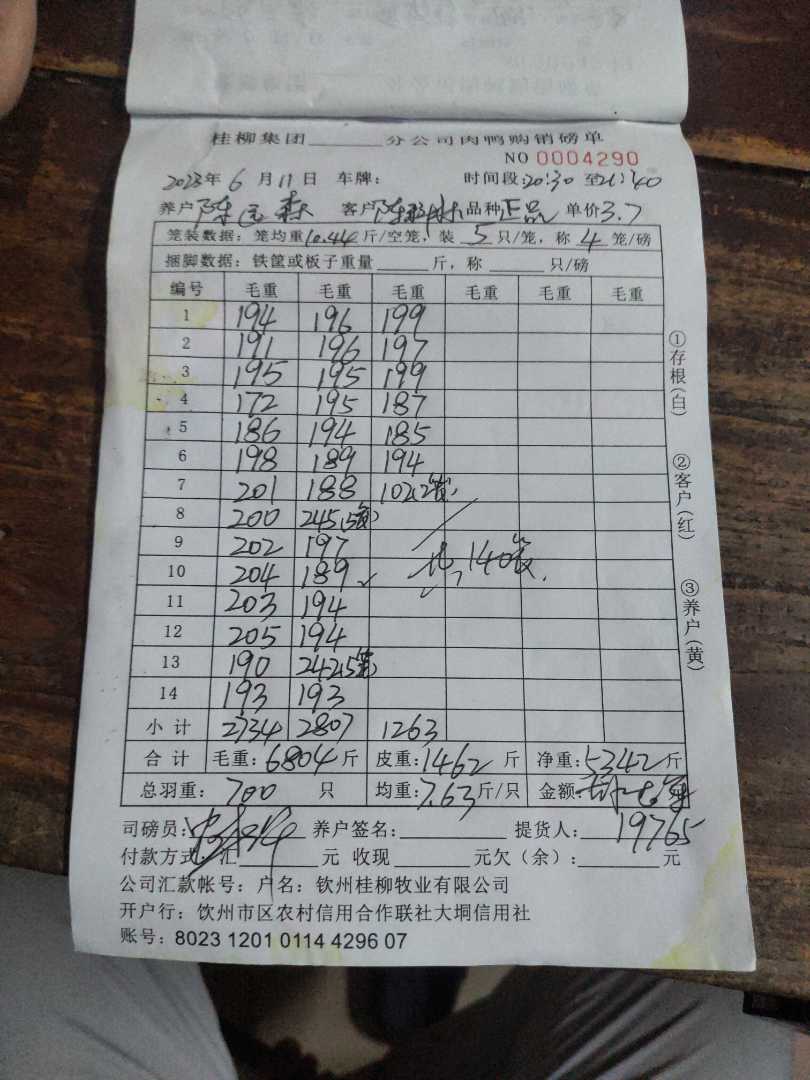 桂柳集团______分公司肉鸭购销磅单
NO 0004290
2023年 6 月 11 日 车牌： 时间段：20:30 至21:40
养户 陈 森 客户 陈 品种 正品 单价 3.7
笼装数据：笼均重 10.44 斤/空笼，装 5 只/笼，称 4 笼/磅
捆脚数据：铁筐或板子重量______斤，称______只/磅
编号 毛重 毛重 毛重 毛重 毛重 毛重
1 194 196 199
2 191 196 197
3 195 195 199
4 172 195 187
5 186 194 185
6 198 189 194
7 201 188 102(2笼)
8 200 245(5笼)
9 202 197
10 204 189 140笼
11 203 194
12 205 194
13 190 242(5笼)
14 193 193
小计 2734 2807 1263
合计 毛重：6804斤 皮重：1462 斤 净重：5342斤
总羽重：700 只 均重：7.63斤/只 金额：
司磅员： 养户签名：______ 提货人： 19765
付款方式：汇______元 收现______元欠（余）：______元
公司汇款帐号：户名：钦州桂柳牧业有限公司
开户行：钦州市区农村信用合作联社大垌信用社
账号：8023 1201 0114 4296 07
①存根(白)
②客户(红)
③养户(黄)